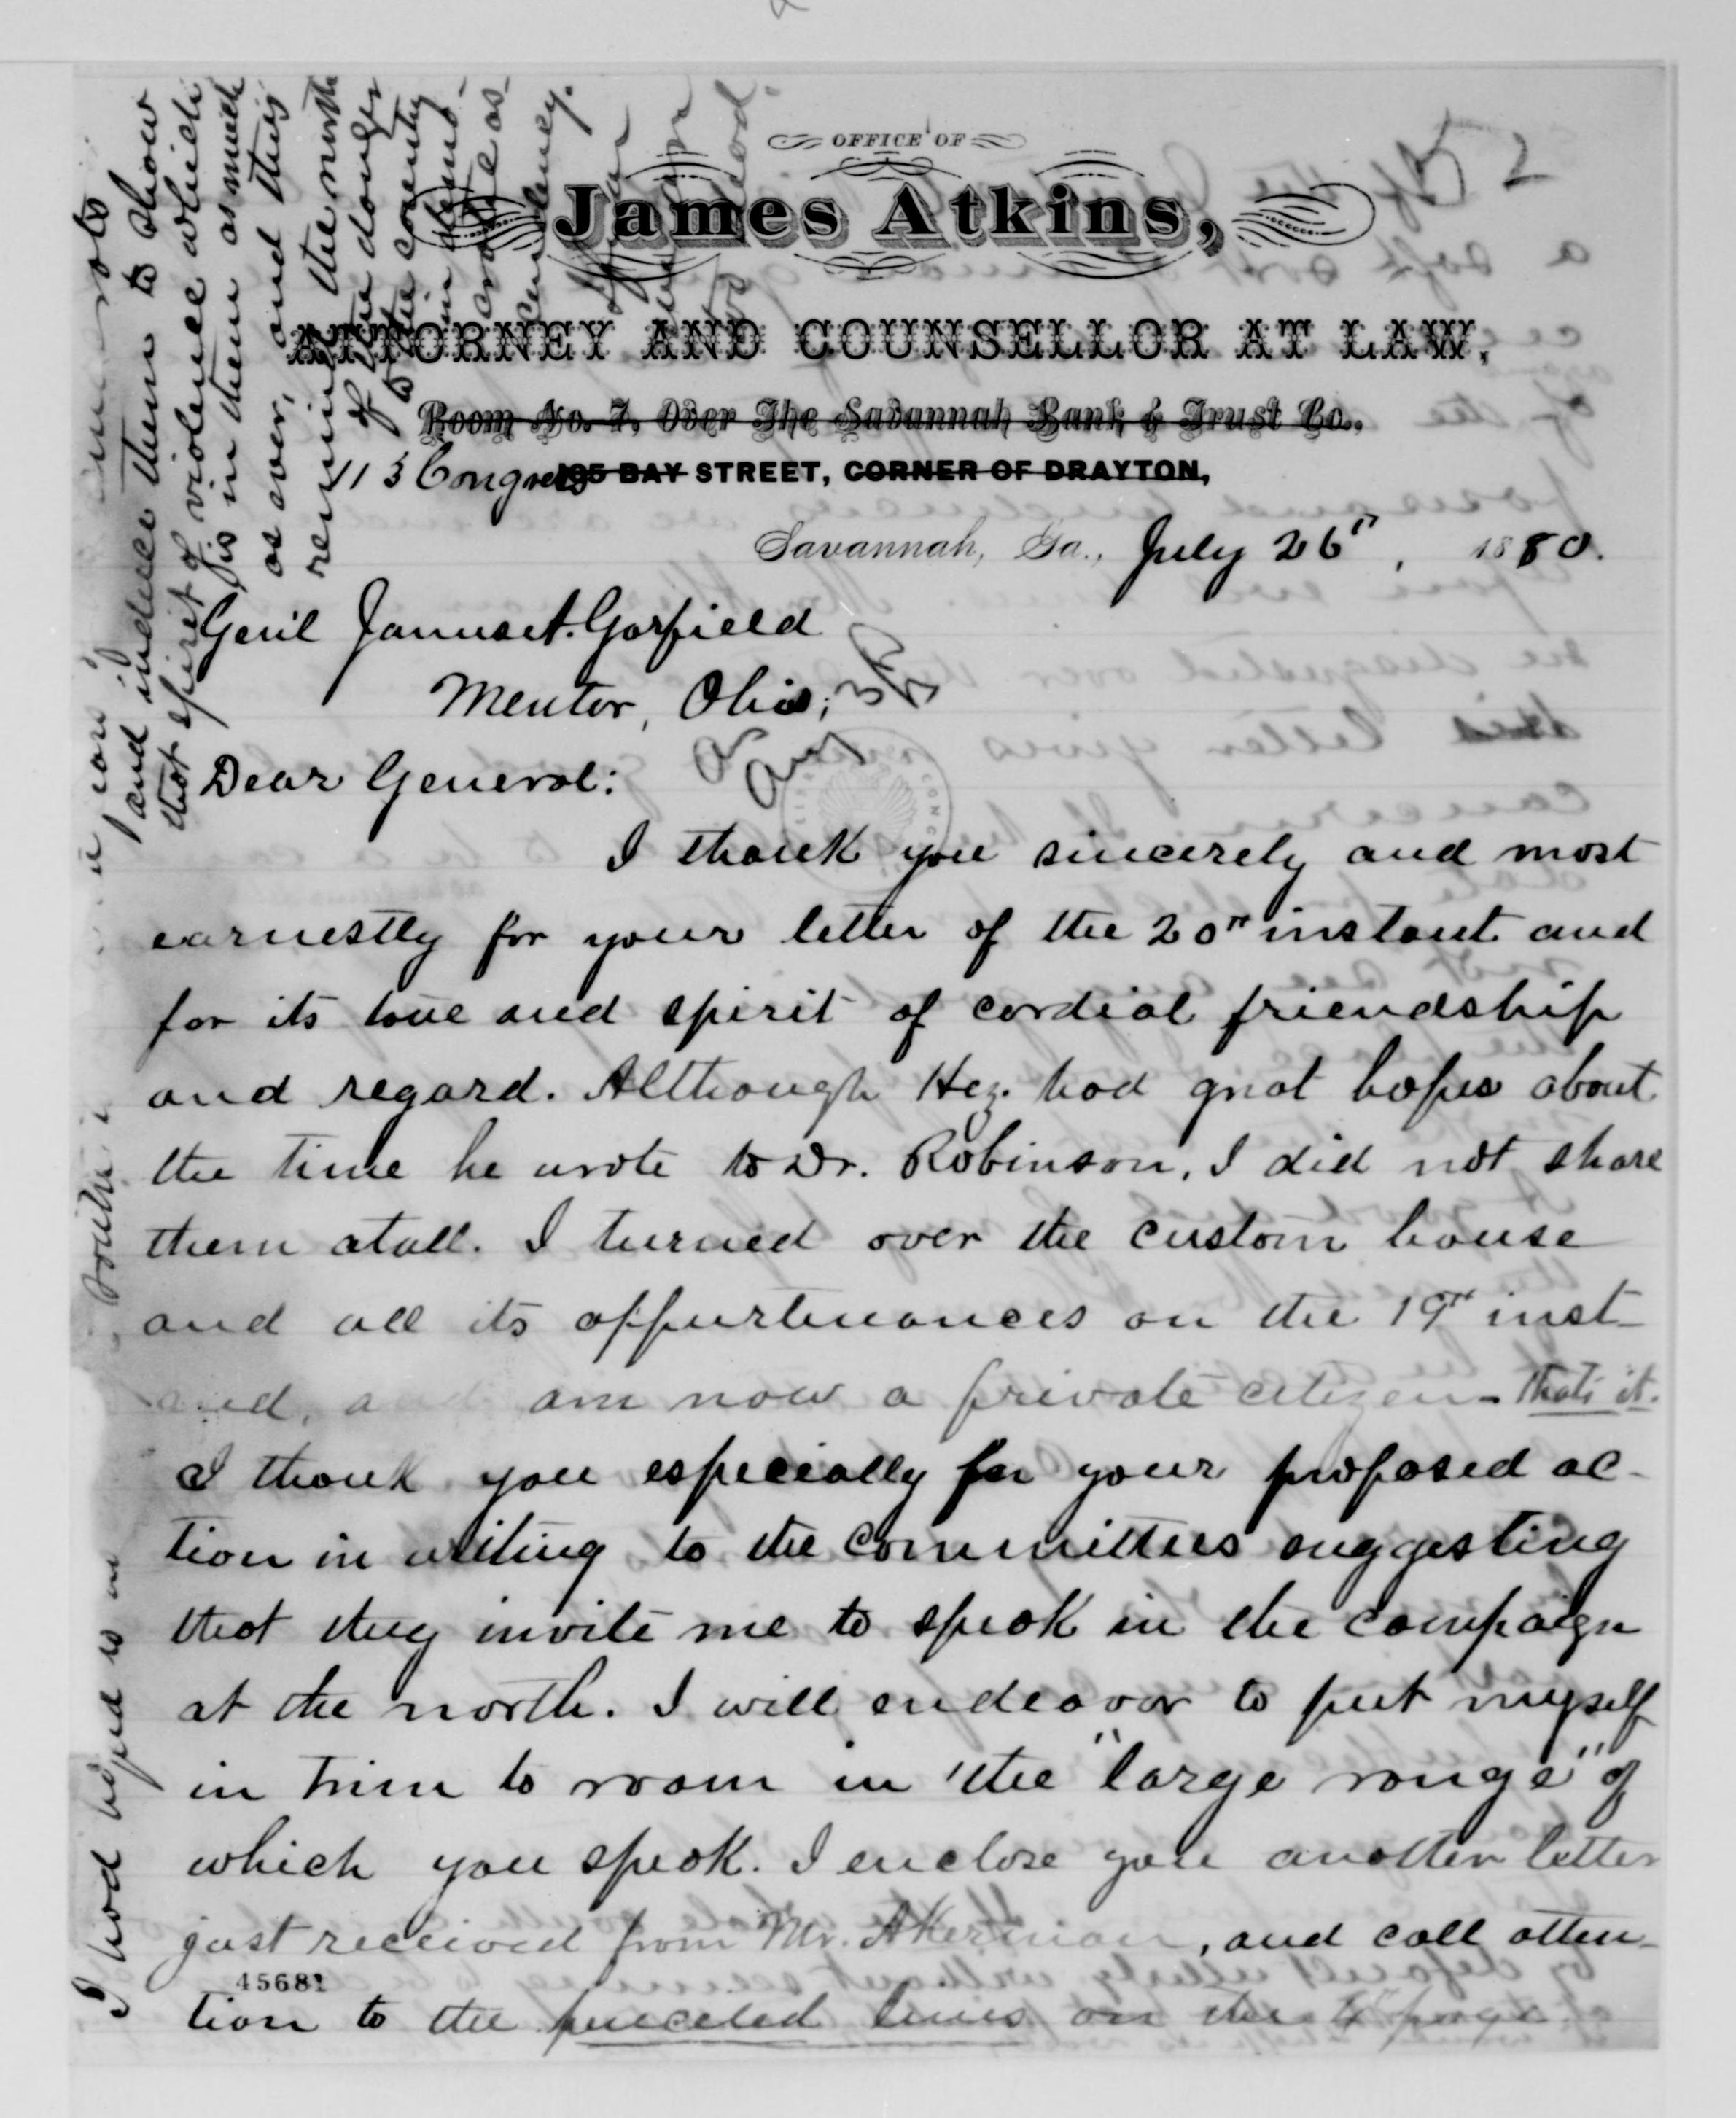 OFFICE OF
James Atkins,
ATTORNEY AND COUNSELLOR AT LAW,
Room No. 7, Over The Savannah Bank & Trust Co.,
113 Congress 105 BAY STREET, CORNER OF DRAYTON,
Savannah, Ga., July 26", 1880.
Genl James A. Garfield
Mentor, Ohio;
Dear General:
I thank you sincerely and most
earnestly for your letter of the 20th instant and
for its tone and spirit of cordial friendship
and regard. Although Hez. had great hopes about
the time he wrote to Dr. Robinson, I did not share
them atall. I turned over the custom house
and all its appurtenances on the 19th inst
and, am now a private citizen - that's it.
I thank you especially for your proposed ac-
tion in writing to the committees suggesting
that they invite me to speak in the campaign
at the north. I will endeavor to put myself
in trim to roam in the "large range" of
which you speak. I enclose you another letter
just received from Mr. Akerman, and call atten-
tion to the penceled lines on the 4" page
45681
I had hoped
and induce them to show
that spirit of violence which
is in them as much
as ever, and thus
remind the north
of the danger
to the country
in
52
Aug